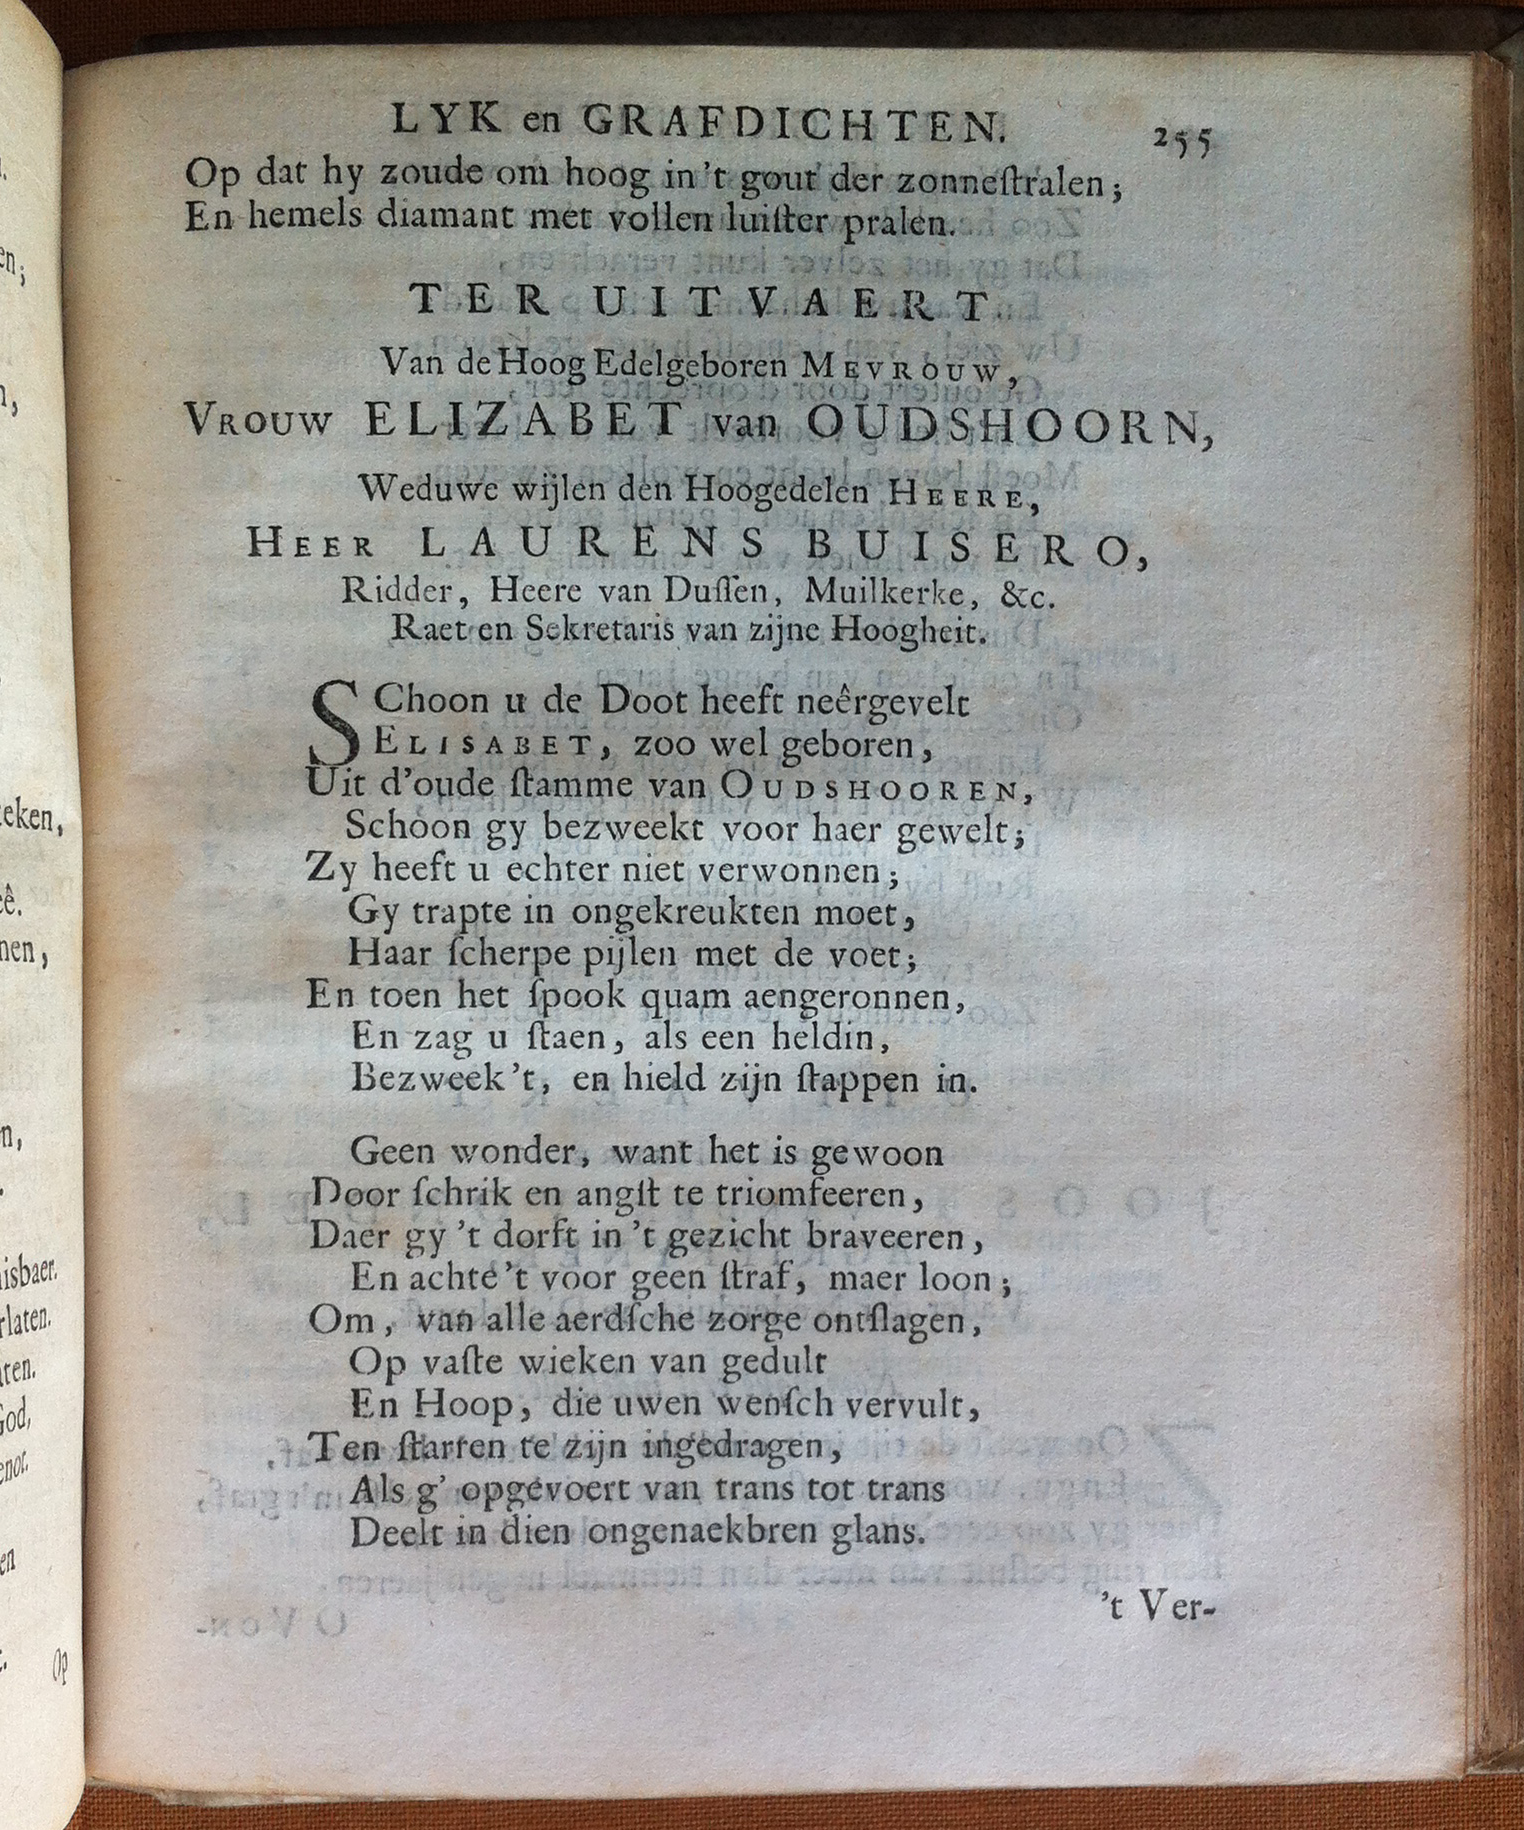 LYK en GRAFDICHTEN. 255
Op dat hy zoude om hoog in 't gout der zonneſtralen;
En hemels diamant met vollen luiſter pralen.
TER UITVAERT
Van de Hoog Edelgeboren MEVROUW,
VROUW ELIZABET van OUDSHOORN,
Weduwe wijlen den Hoogedelen HEERE,
HEER LAURENS BUISERO,
Ridder, Heere van Duſſen, Muilkerke, &c.
Raet en Sekretaris van zijne Hoogheit.
SChoon u de Doot heeft neêrgevelt
ELISABET, zoo wel geboren,
Uit d'oude ſtamme van OUDSHOOREN,
Schoon gy bezweekt voor haer gewelt;
Zy heeft u echter niet verwonnen;
Gy trapte in ongekreukten moet,
Haar ſcherpe pijlen met de voet;
En toen het ſpook quam aengeronnen,
En zag u ſtaen, als een heldin,
Bezweek 't, en hield zijn ſtappen in.
Geen wonder, want het is gewoon
Door ſchrik en angſt te triomfeeren,
Daer gy 't dorft in 't gezicht braveeren,
En achte 't voor geen ſtraf, maer loon;
Om, van alle aerdſche zorge ontſlagen,
Op vaſte wieken van gedult
En Hoop, die uwen wenſch vervult,
Ten ſtarren te zijn ingedragen,
Als g' opgevoert van trans tot trans
Deelt in dien ongenaekbren glans.
't Ver-
eken,
nen,
isbaer.
rlaten.
ten.
God,
enot.
en
Op